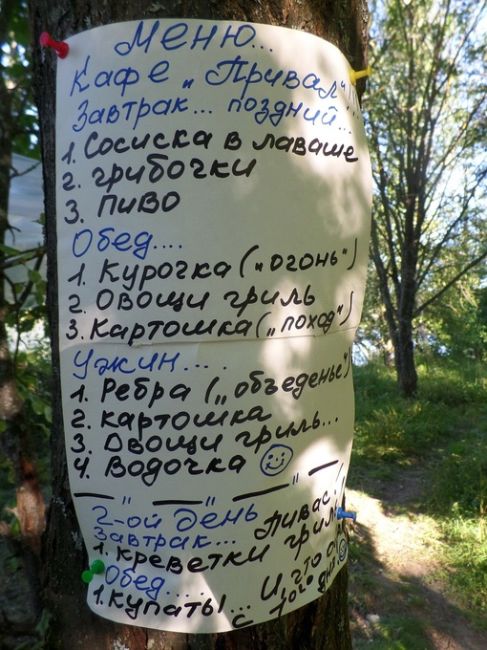 Меню...
Кафе „Привал"!!!
Завтрак... поздний...
1. Сосиска в лаваше
2. грибочки
3. пиво
Обед....
1. Курочка („огонь")
2. Овощи гриль
3. Картошка („поход")
Ужин....
1. Ребра („объеденье")
2. картошка
3. Овощи гриль...
4. Водочка ☺
— „ — „ — „ —
2-ой день
Завтрак... Пивас!
1. креветки гриль
Обед....
1. Купаты... И, что о
с 1ого дня